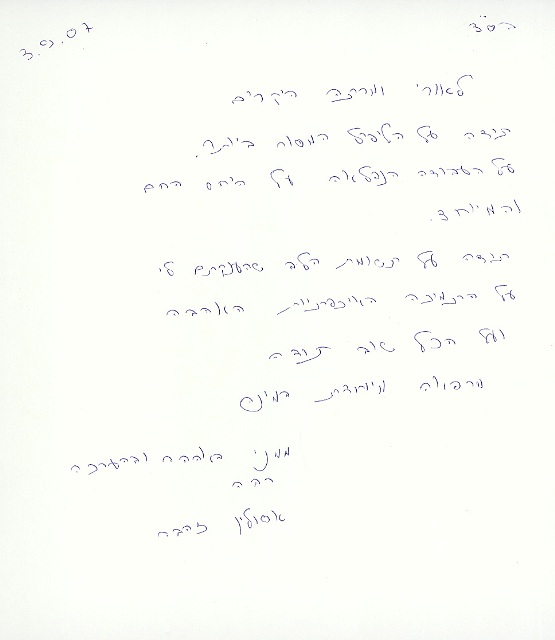 בס"ד
3.9.07
לאורי ומרתה היקרים
תודה על הטיפול המסור ביותר.
על העבודה הנפלאה על היחס החם
והמיוחד.
תודה על תשומת הלב שהענקתם לי
על התמיכה האיכפתיות האהבה
ועל הכל שוב תודה
מרפואה מיוחדת במינה
ממני באהבה ובהערכה
רבה
אסולין זהבה